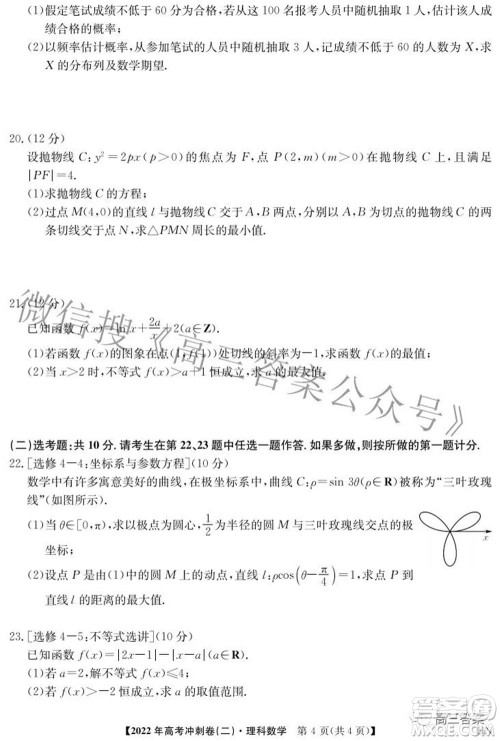 (1)假定笔试成绩不低于 60 分为合格,若从这 100 名报考人员中随机抽取 1 人,估计该人成
绩合格的概率;
(2)以频率估计概率,从参加笔试的人员中随机抽取 3 人,记成绩不低于 60 的人数为 X,求
X 的分布列及数学期望.
20.(12 分)
设抛物线 C:y²=2px(p>0)的焦点为 F,点 P(2,m)(m>0)在抛物线 C 上,且满足
|PF|=4.
(1)求抛物线 C 的方程;
(2)过点 M(4,0)的直线 l 与抛物线 C 交于 A,B 两点,分别以 A,B 为切点的抛物线 C 的两
条切线交于点 N,求△PMN 周长的最小值.
21.(12 分)
已知函数 f(x)=ln x+2a/x+2(a∈Z).
(1)若函数 f(x)的图象在点(1,f(1))处切线的斜率为−1,求函数 f(x)的最值;
(2)当 x>2 时,不等式 f(x)>a+1 恒成立,求 a 的最大值.
微信搜《高三答案公众号》
(二)选考题:共 10 分.请考生在第 22、23 题中任选一题作答.如果多做,则按所做的第一题计分.
22.[选修 4−4:坐标系与参数方程](10 分)
数学中有许多寓意美好的曲线,在极坐标系中,曲线 C:ρ=sin 3θ(ρ∈R)被称为“三叶玫瑰
线”(如图所示).
(1)当 θ∈[0,π),求以极点为圆心,1/2 为半径的圆 M 与三叶玫瑰线交点的极
坐标;
(2)设点 P 是由(1)中的圆 M 上的动点,直线 l:ρcos(θ−π/4)=1,求点 P 到
直线 l 的距离的最大值.
O
x
23.[选修 4−5:不等式选讲](10 分)
已知函数 f(x)=|2x−2|−|2x−a|(a∈R).
(1)若 a=−2,解不等式 f(x)≤2;
【2022 年高考冲刺卷(二)·理科数学 第 4 页(共 4 页)】
高三答案